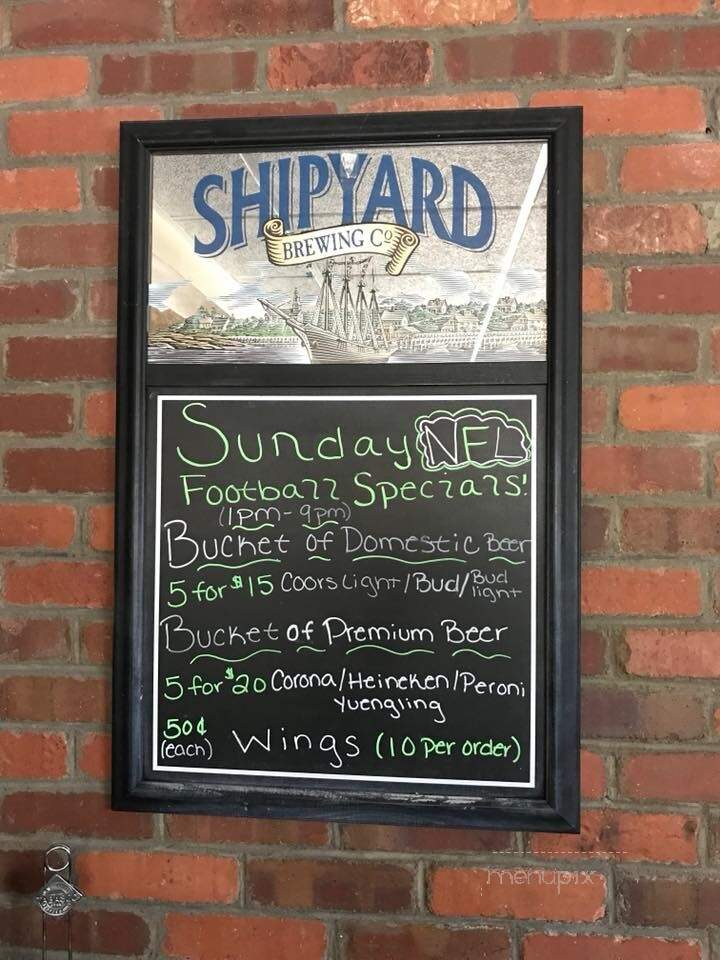 SHIPYARD
BREWING Co
Sunday NFL
Football Specials!
(1pm-9pm)
Bucket of Domestic Beer
5 for $15 Coors Light/Bud/Bud light
Bucket of Premium Beer
5 for $20 Corona/Heineken/Peroni
Yuengling
50¢ (each) Wings (10 per order)
menupix